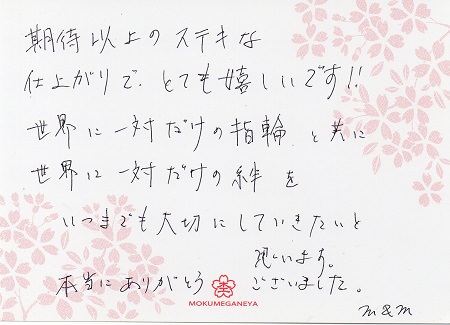 期待以上のステキな
仕上がりで、とても嬉しいです!!
世界に一対だけの指輪と共に
世界に一対だけの絆を
いつまでも大切にしていきたいと
思います。
本当にありがとうございました。
MOKUMEGANEYA
m&m